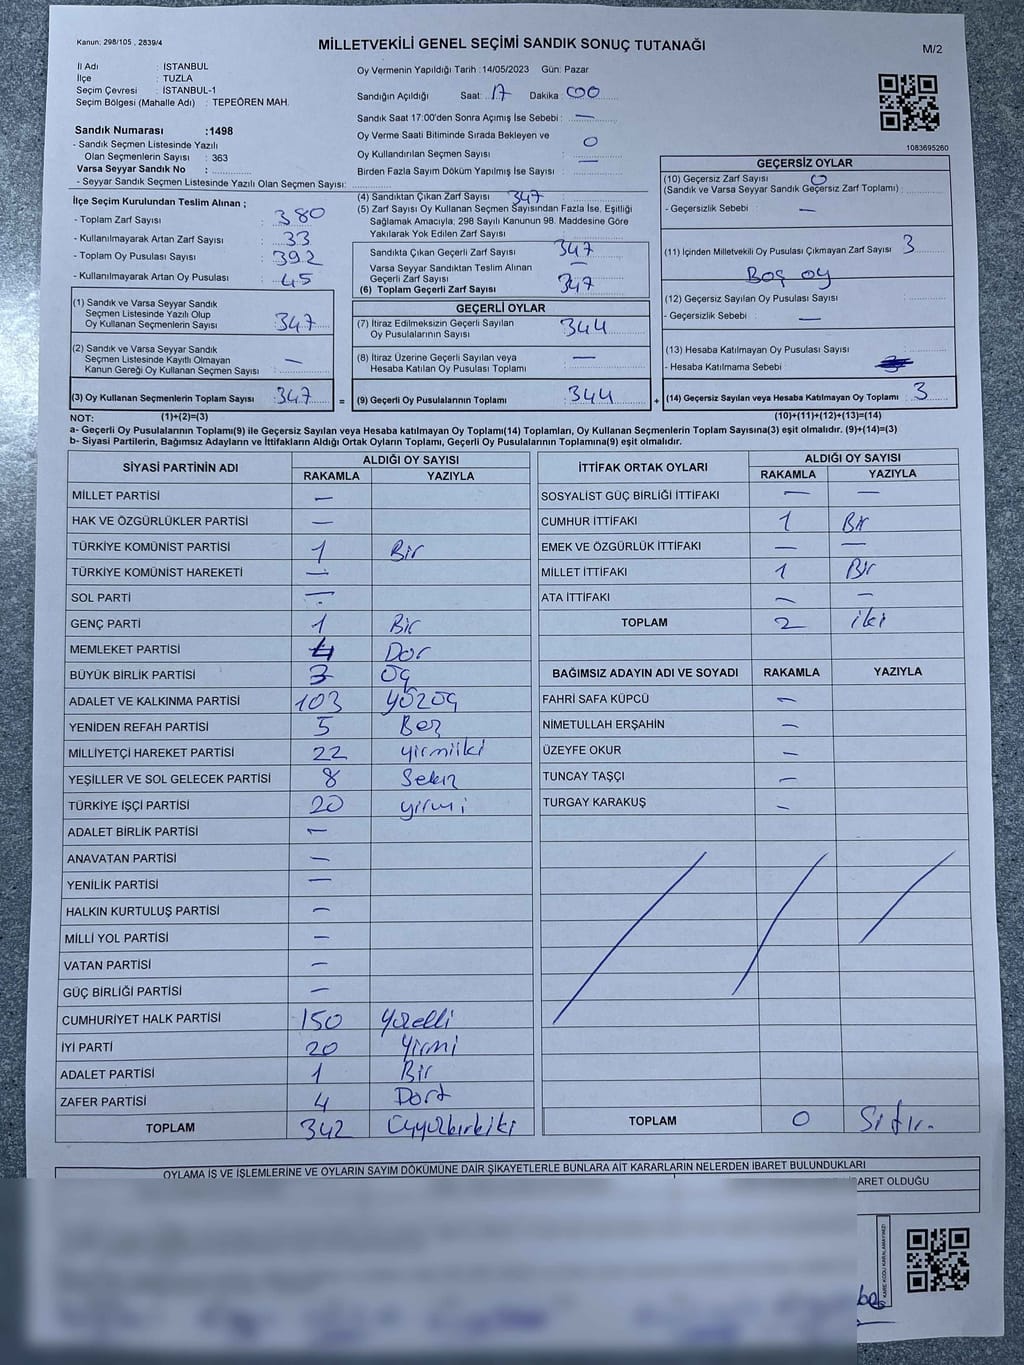 Kanun: 298/105 , 2839/4
MİLLETVEKİLİ GENEL SEÇİMİ SANDIK SONUÇ TUTANAĞI
M/2
İl Adı : İSTANBUL
İlçe : TUZLA
Seçim Çevresi : İSTANBUL-1
Seçim Bölgesi (Mahalle Adı) : TEPEÖREN MAH.
Oy Vermenin Yapıldığı Tarih :14/05/2023 Gün: Pazar
Sandığın Açıldığı Saat: 17 Dakika 00
Sandık Saat 17:00'den Sonra Açımış İse Sebebi : —
Oy Verme Saati Bitiminde Sırada Bekleyen ve
Oy Kullandırılan Seçmen Sayısı : 0
Birden Fazla Sayım Döküm Yapılmış İse Sayısı : —
Sandık Numarası :1498
- Sandık Seçmen Listesinde Yazılı
Olan Seçmenlerin Sayısı : 363
Varsa Seyyar Sandık No :
- Seyyar Sandık Seçmen Listesinde Yazılı Olan Seçmen Sayısı:
1083695260
İlçe Seçim Kurulundan Teslim Alınan ;
- Toplam Zarf Sayısı : 380
- Kullanılmayarak Artan Zarf Sayısı : 33
- Toplam Oy Pusulası Sayısı : 392
- Kullanılmayarak Artan Oy Pusulası : 45
(1) Sandık ve Varsa Seyyar Sandık
Seçmen Listesinde Yazılı Olup
Oy Kullanan Seçmenlerin Sayısı : 347
(2) Sandık ve Varsa Seyyar Sandık
Seçmen Listesinde Kayıtlı Olmayan
Kanun Gereği Oy Kullanan Seçmen Sayısı : —
(3) Oy Kullanan Seçmenlerin Toplam Sayısı : 347 =
(4) Sandıktan Çıkan Zarf Sayısı : 347
(5) Zarf Sayısı Oy Kullanan Seçmen Sayısından Fazla İse, Eşitliği
Sağlamak Amacıyla; 298 Sayılı Kanunun 98. Maddesine Göre
Yakılarak Yok Edilen Zarf Sayısı :
Sandıkta Çıkan Geçerli Zarf Sayısı : 347
Varsa Seyyar Sandıktan Teslim Alınan
Geçerli Zarf Sayısı : —
(6) Toplam Geçerli Zarf Sayısı : 347
GEÇERLİ OYLAR
(7) İtiraz Edilmeksizin Geçerli Sayılan
Oy Pusulalarının Sayısı : 344
(8) İtiraz Üzerine Geçerli Sayılan veya
Hesaba Katılan Oy Pusulası Toplamı : —
(9) Geçerli Oy Pusulalarının Toplamı : 344 +
GEÇERSİZ OYLAR
(10) Geçersiz Zarf Sayısı : 0
(Sandık ve Varsa Seyyar Sandık Geçersiz Zarf Toplamı)
- Geçersizlik Sebebi : —
(11) İçinden Milletvekili Oy Pusulası Çıkmayan Zarf Sayısı : 3
Boş oy
(12) Geçersiz Sayılan Oy Pusulası Sayısı :
- Geçersizlik Sebebi : —
(13) Hesaba Katılmayan Oy Pusulası Sayısı :
- Hesaba Katılmama Sebebi :
(14) Geçersiz Sayılan veya Hesaba Katılmayan Oy Toplamı : 3
NOT: (1)+(2)=(3) (10)+(11)+(12)+(13)=(14)
a- Geçerli Oy Pusulasının Toplamı(9) ile Geçersiz Sayılan veya Hesaba katılmayan Oy Toplamı(14) Toplamları, Oy Kullanan Seçmenlerin Toplam Sayısına(3) eşit olmalıdır. (9)+(14)=(3)
b- Siyasi Partilerin, Bağımsız Adayların ve İttifakların Aldığı Ortak Oyların Toplamı, Geçerli Oy Pusulalarının Toplamına(9) eşit olmalıdır.
SİYASİ PARTİNİN ADI ALDIĞI OY SAYISI
RAKAMLA YAZIYLA
MİLLET PARTİSİ —
HAK VE ÖZGÜRLÜKLER PARTİSİ —
TÜRKİYE KOMÜNİST PARTİSİ 1 Bir
TÜRKİYE KOMÜNİST HAREKETİ —
SOL PARTİ —
GENÇ PARTİ 1 Bir
MEMLEKET PARTİSİ 4 Dör
BÜYÜK BİRLİK PARTİSİ 3 Üç
ADALET VE KALKINMA PARTİSİ 103 yüzüç
YENİDEN REFAH PARTİSİ 5 Beş
MİLLİYETÇİ HAREKET PARTİSİ 22 yirmiiki
YEŞİLLER VE SOL GELECEK PARTİSİ 8 Sekiz
TÜRKİYE İŞÇİ PARTİSİ 20 yirmi
ADALET BİRLİK PARTİSİ —
ANAVATAN PARTİSİ —
YENİLİK PARTİSİ —
HALKIN KURTULUŞ PARTİSİ —
MİLLİ YOL PARTİSİ —
VATAN PARTİSİ —
GÜÇ BİRLİĞİ PARTİSİ —
CUMHURİYET HALK PARTİSİ 150 Yüzelli
İYİ PARTİ 20 Yirmi
ADALET PARTİSİ 1 Bir
ZAFER PARTİSİ 4 Dört
TOPLAM 342
İTTİFAK ORTAK OYLARI ALDIĞI OY SAYISI
RAKAMLA YAZIYLA
SOSYALİST GÜÇ BİRLİĞİ İTTİFAKI — —
CUMHUR İTTİFAKI 1 Bir
EMEK VE ÖZGÜRLÜK İTTİFAKI — —
MİLLET İTTİFAKI 1 Bir
ATA İTTİFAKI — —
TOPLAM 2 iki
BAĞIMSIZ ADAYIN ADI VE SOYADI RAKAMLA YAZIYLA
FAHRİ SAFA KÜPCÜ —
NİMETULLAH ERŞAHİN —
ÜZEYFE OKUR —
TUNCAY TAŞÇI —
TURGAY KARAKUŞ —
TOPLAM 0 Sıfır.
OYLAMA İŞ VE İŞLEMLERİNE VE OYLARIN SAYIM DÖKÜMÜNE DAİR ŞİKAYETLERLE BUNLARA AİT KARARLARIN NELERDEN İBARET BULUNDUKLARI
OLDUĞU